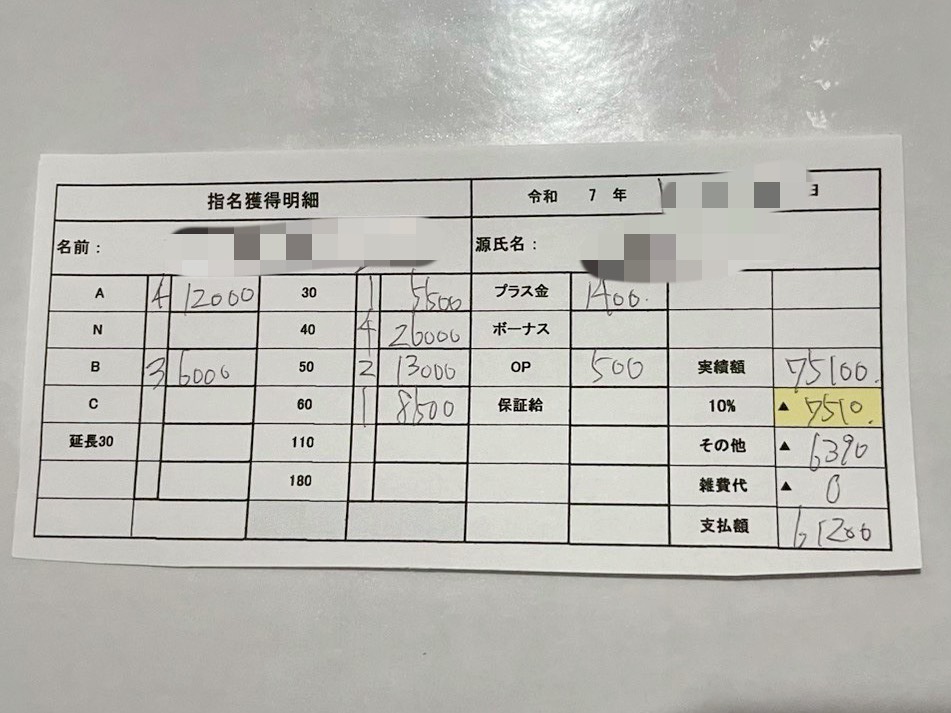 指名獲得明細 令和 7 年 日
名前： 源氏名：
A 4 12000 30 1 5500 プラス金 1400.
N 40 4 26000 ボーナス
B 3 6000 50 2 13000 OP 500 実績額 75100.
C 60 1 8500 保証給 10% ▲ 7510.
延長30 110 その他 ▲ 6390
180 雑費代 ▲ 0
支払額 61200